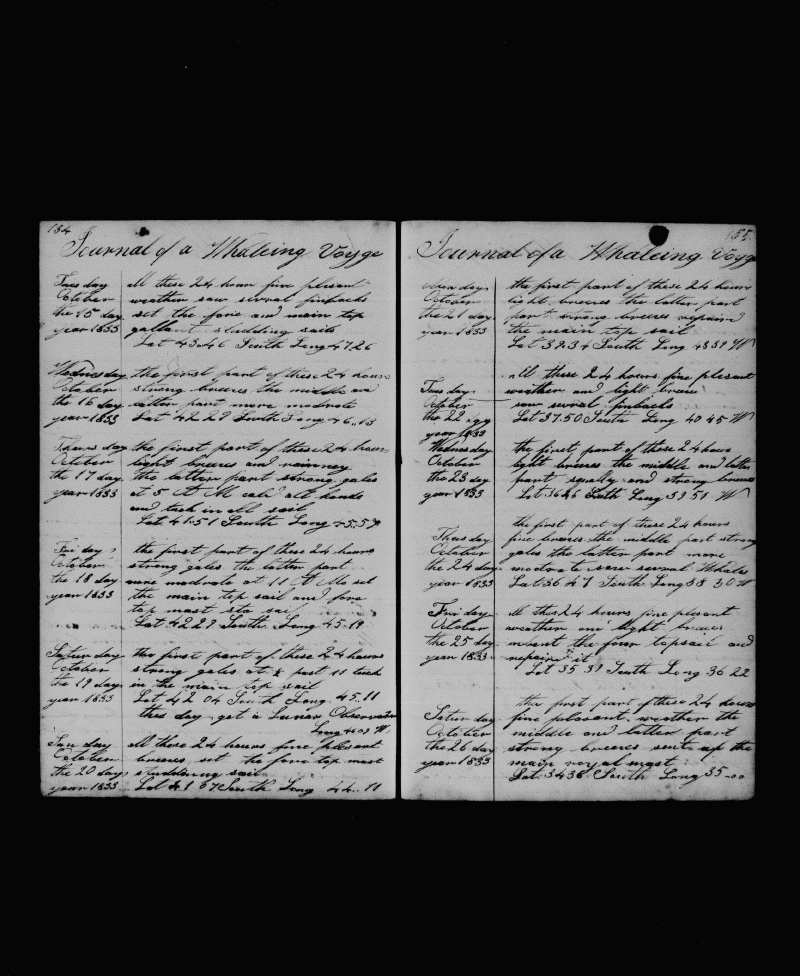 184
Journal of a Whaleing Voyge
Tues day all these 24 hour fine plesent
October weather saw sivral finbacks
the 15 day set the fore and main top
year 1833 gallant studding sails
Lat 43.46 South Long 47.26
Wednesday the first part of these 24 hours
October strong breeses the middle and
the 16 day latter part more modrate
year 1833 Lat 42 29 South Long 46..13
Thurs day the first part of these 24 hours
October light breeses and rainney
the 17 day the latter part strong gales
year 1833 at 5 A M cald all hands
and tuck in all sail
Lat 41.51 South Long 45.57
Fri day the first part of these 24 hours
October strong gales the latter part
the 18 day more modrate at 11 A M set
year 1833 the main top sail and fore
top mast sta sail
Lat 42 29 South Long 45.19
Satur day the first part of these 24 hours
October strong gales at ½ past 11 tuck
the 19 day in the main top sail
year 1833 Lat 42 04 South Long 45..11
this day get a Lunar Observation
Long W.
Sun day all these 24 hours fine plesant
October breeses set the fore top mast
the 20 day studdning sails
year 1833 Lat 41 07 South Long 44..11
185
Journal of a Whaleing Voyge
Mon day the first part of these 24 hours
October light breeses the latter part
the 21 day part strong breeses repaired
year 1833 the main top sail
Lat 39.34 South Long 43 39 W
all these 24 hours fine plesant
Tues day weather and light breeses
October saw sevral finbacks
the 22 day Lat 37.50 South Long 40 45 W
year 1833
Wednesday the first part of these 24 hours
October light breeses the middle and latter
the 23 day part squaly and strong breeses
year 1833 Lat 36 26 South Long 39 51 W
the first part of these 24 hours
Thurs day fine breeses the middle part strong
October gales the latter part more
the 24 day modrate saw sevral Whales
year 1833 Lat 36 47 South Long 38 30 W
Fri day all these 24 hours fine plesant
October weather and light breeses
the 25 day the four topsail and
year 1833 repaird it
Lat 35 31 South Long 36 22
the first part of these 24 hours
Satur day fine plesant weather the
October middle and latter part
the 26 day strong breeses sent up the
year 1833 main royal mast
Lat 34 36 South Long 35-00